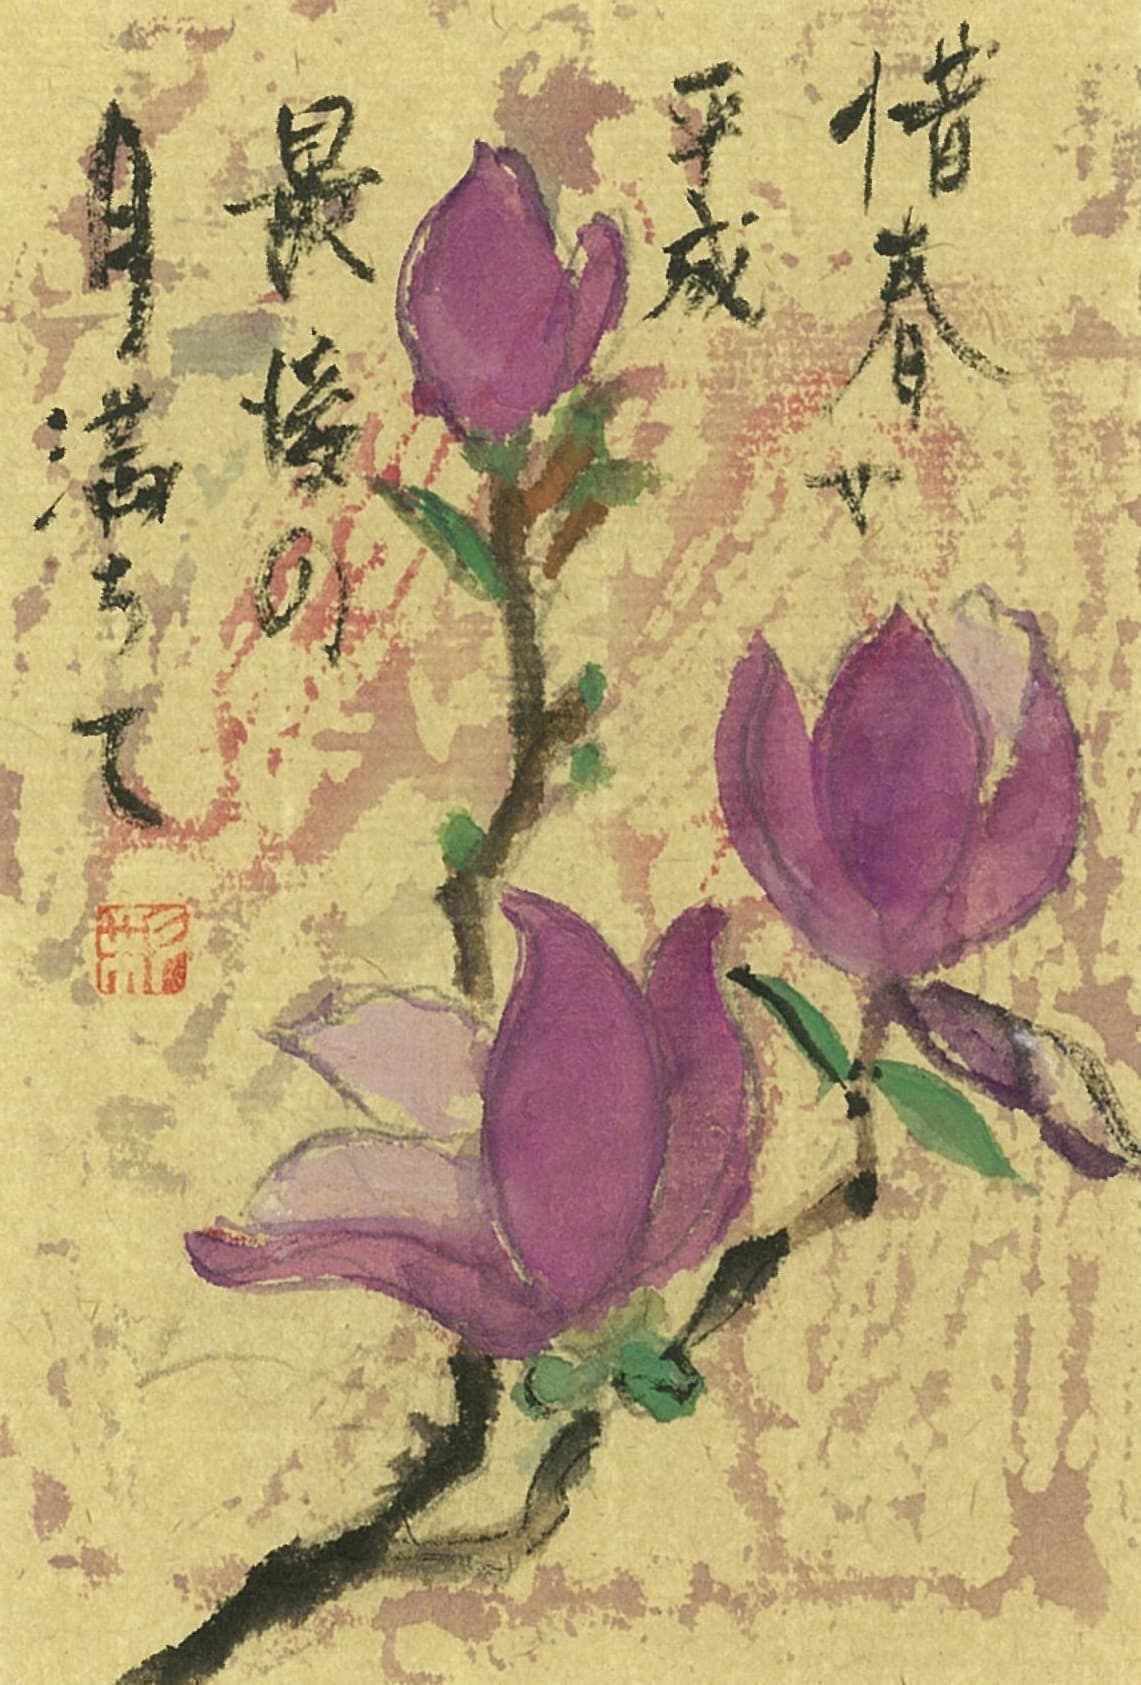 惜春や
平成
最後の
月満ちて